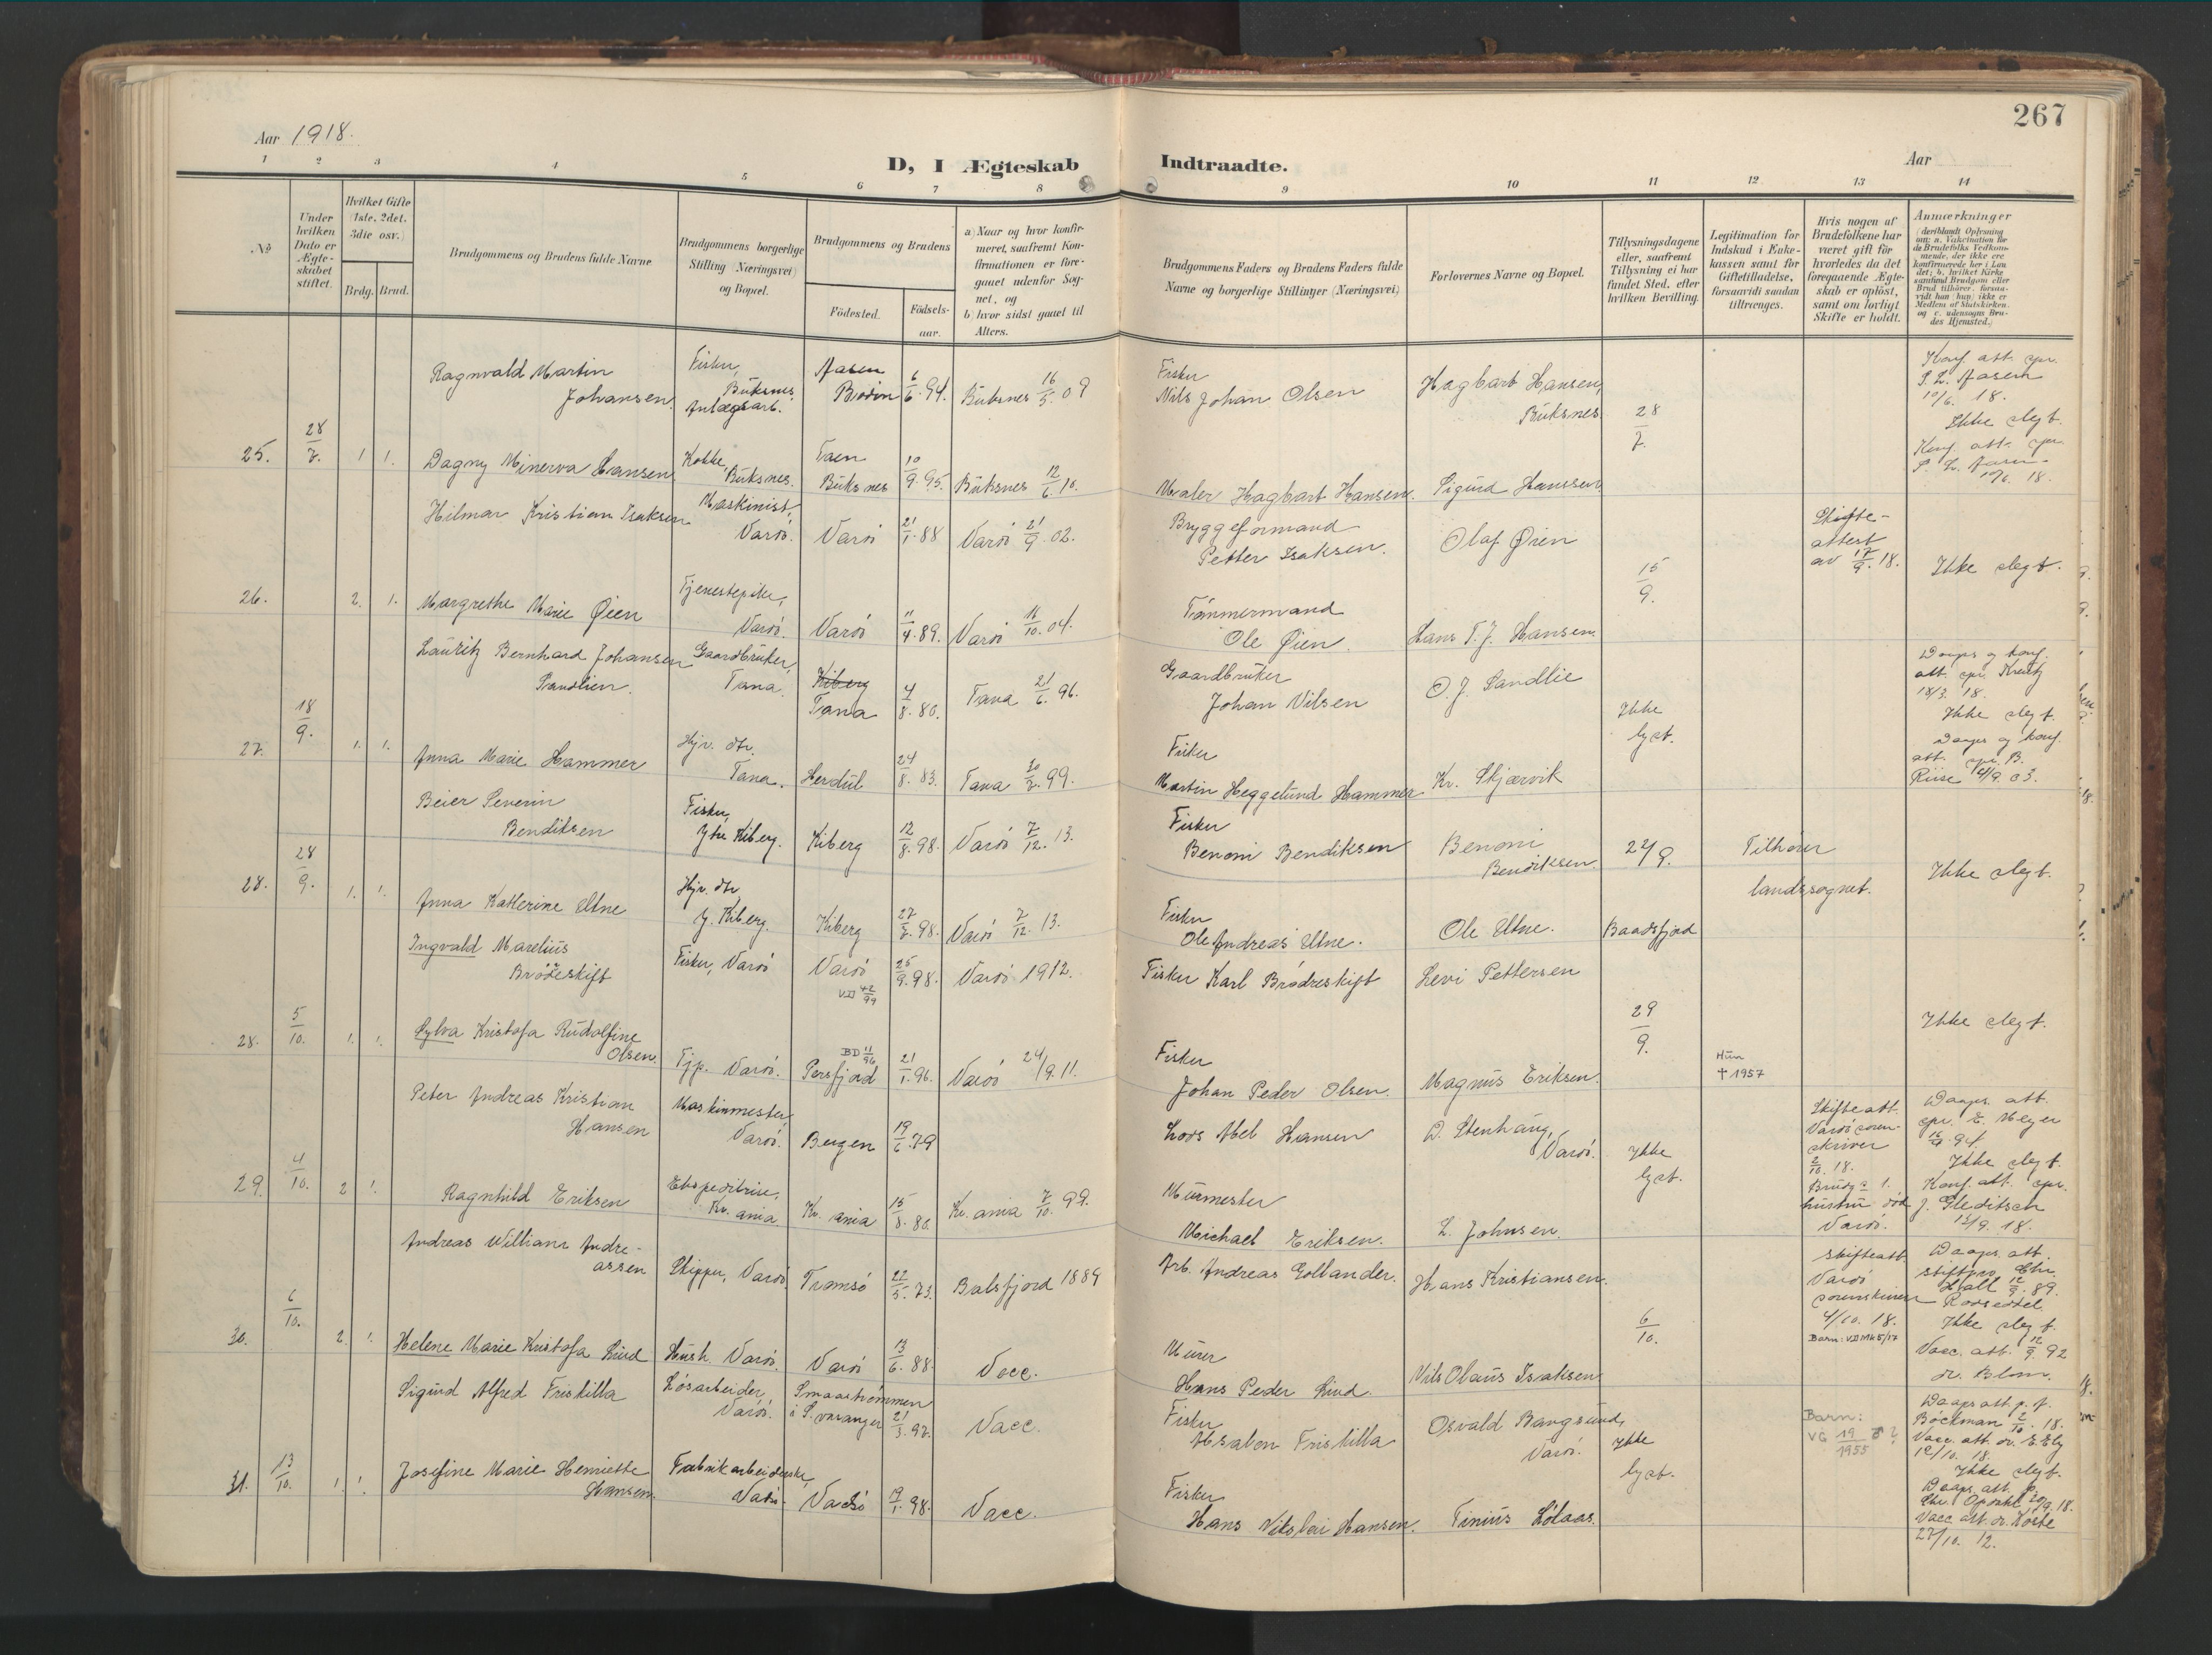 267
Aar 1918.
D, I Ægteskab Indtraadte.
Aar
1 2 3 4 5 6 7 8 9 10 11 12 13 14
No
Under hvilken Dato er Ægteskabet stiftet.
Hvilket Gifte (1ste, 2det, 3die osv.)
Brdg. Brud.
Brudgommens og Brudens fulde Navne
Brudgommens borgerlige Stilling (Næringsvei) og Bopæl.
Brudgommens og Brudens
Födested. Födselsaar.
a) Naar og hvor konfirmeret, saafremt Konfirmationen er foregaaet udenfor Sognet, og
b) hvor sidst gaaet til Alters.
Brudgommens Faders og Brudens Faders fulde Navne og borgerlige Stillinger (Næringsvei)
Forlovernes Navne og Bopæl.
Tillysningsdagene eller, saafremt Tillysning ei har fundet Sted, efter hvilken Bevilling.
Legitimation for Indskud i Enkekassen samt for Giftetilladelse, forsaavidt saadan tiltrænges.
Hvis nogen af Brudefolkene har været gift før hvorledes da det foregaaende Ægteskab er oplöst, samt om lovligt Skifte er holdt.
Anmærkninger (deriblandt Oplysning om: a. Vakcination for de Brudefolks Vedkommende, der ikke ere konfirmerede her i Landet; b. hvilket Kirkesamfund Brudgom eller Brud tilhører, forsaavidt han (hun) ikke er Medlem af Statskirken, og c. udensogns Brudes Hjemsted.)
Ragnvald Martin Johansen
Fisker, Buksnes
Bodin 6/6. 94. Buksnes 16/5. 09
Fisker Nils Johan Olsen
Hagbart Hansen, Buksnes
28/7.
Konf. att. spr.
10/6. 18.
Ikke slegt.
25. 28/7. 1 1. Dagny Minerva Hansen
Kokke, Buksnes.
Buksnes 10/9. 95. Buksnes 12/6. 10.
Maler Hagbart Hansen. Sigurd Hanssen
Konf. att. spr.
10/6. 18.
Hilmar Kristian Isaksen
Maskinist, Vardö.
Vardö 21/1. 88 Vardö 21/9. 02.
Bryggeformand Petter Isaksen.
Olaf Øien
15/9.
Skifteattest av 17/9. 18.
Ikke slegt.
26. 2. 1. Margrethe Marie Øien
Tjenestepike, Vardö.
Vardö 11/4. 89. Vardö 16/10. 04.
Tömmermand Ole Øien.
Hans T. J. Hansen.
Lauritz Bernhard Johansen Sandlien.
Gaardbruker, Tana.
Kiberg Tana 4/8. 80. Tana 21/6. 96.
Gaardbruker Johan Nilsen
O. J. Sandlie
Ikke lyst.
Daaps og konf. att. spr. Kreutz 18/3. 18.
Ikke slegt.
27. 18/9. 1. 1. Anna Marie Hammer
Hjv. dtr. Tana.
24/8. 83. Tana 30/7. 99.
Fisker Martin Heggelund Hammer
Kr. Skjærvik
Daaps og konf. att. spr. B. Riise 4/9. 03.
Beier Severin Bendiksen
Fisker, Ytre Kiberg.
Kiberg 12/8. 98. Vardö 7/12. 13.
Fisker Benoni Bendiksen
Benoni Bendiksen
22/9.
Tilhörer landssognet.
Ikke slegt.
28. 28/9. 1. 1. Anna Katherine Utne
Hjv. dtr Y. Kiberg.
Kiberg 27/7. 98. Vardö 7/12. 13.
Fisker Ole Andreas Utne.
Ole Utne. Baadsfjord
Ingvald Marelius Brödreskift
Fisker, Vardö
Vardö 25/9. 98. Vardö 1912.
VD 42/99
Fisker Karl Brödreskift
Levi Pettersen
29/9.
Ikke slegt.
28. 5/10. 1. 1. Sylva Kristofa Rudolfine Olsen.
Tjp. Vardö.
BD 11/96
Persfjord 21/1. 96. Vardö 24/9. 11.
Fisker Johan Peder Olsen.
Magnus Eriksen.
Hun † 1957
Peter Andreas Kristian Hansen
Maskinmester, Vardö.
Bergen 19/6. 79
Lods Abel Hansen
D. Stenhaug, Vardö.
Ikke lyst.
Skifteatt. Vardö sorenskriver 2/10. 18.
Brudg:s 1. hustru död Vardö.
Daaps. att. spr. E. Meyer
Ikke slegt.
29. 4/10. 2 1. Ragnhild Eriksen
Ekspeditrise, Kr.ania
Kr.ania 15/8. 80. Kr.ania 7/10. 99.
Murmester Michael Eriksen.
L. Johnsen.
Konf. att. spr. J. Gleditsch 12/9. 18.
Andreas William Andreassen
Skipper, Vardö
Tromsö 22/5. 73. Balsfjord 1889
Arb. Andreas Gollander.
Hans Kristiansen.
6/10.
Skifteatt. Vardö sorenskriver 4/10. 18.
Daaps. att.
12/9. 89.
Ikke slegt.
30. 6/10. 2. 1. Helene Marie Kristofa Lind
Hush. Vardö.
Vardö 13/6. 88. Vacc.
Murer Hans Peder Lind.
Nils Olaus Isaksen
Barn: VD
Vacc. att. 12/9. 92 dr. Blom.
Sigurd Alfred Friskilla
Lösarbeider, Vardö.
Smaaströmmen i S. varanger 21/3. 97. Vacc.
Fisker Absalon Friskilla
Osvald Bangsund, Vardö.
Ikke lyst.
Barn: VG 19/1955 ?
Daapsatt. p. f. Böckman 2/10. 18.
Vacc. att. dr. E. Ely 12/10. 18.
Ikke slegt.
31. 13/10. 1. 1. Josefine Marie Henriette Hansen.
Fabrikarbeiderske, Vardö.
Vardö 19/1. 98. Vacc.
Fisker Hans Nikolai Hansen.
Tinius Lölaas.
Daaps. att. p. Chr. Opdahl 20/9. 18.
Vacc. att. dr. Koste 27/10. 12.